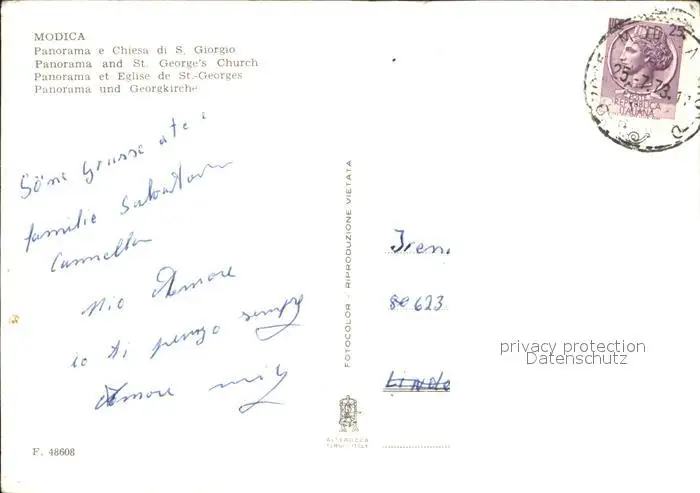 MODICA
Panorama e Chiesa di S. Giorgio
Panorama and St. George's Church
Panorama et Eglise de St.-Georges
Panorama und Georgkirche
Söne Grusse
familie Salvatore
Cannella
Mio Amore
io ti penso sempre
Amore mio
F. 48608
FOTOCOLOR - RIPRODUZIONE VIETATA
ALTEROCCA
TERNI
Iren.
8623
25
25.-7.73.
REPUBBLICA
ITALIANA
privacy protection
Datenschutz